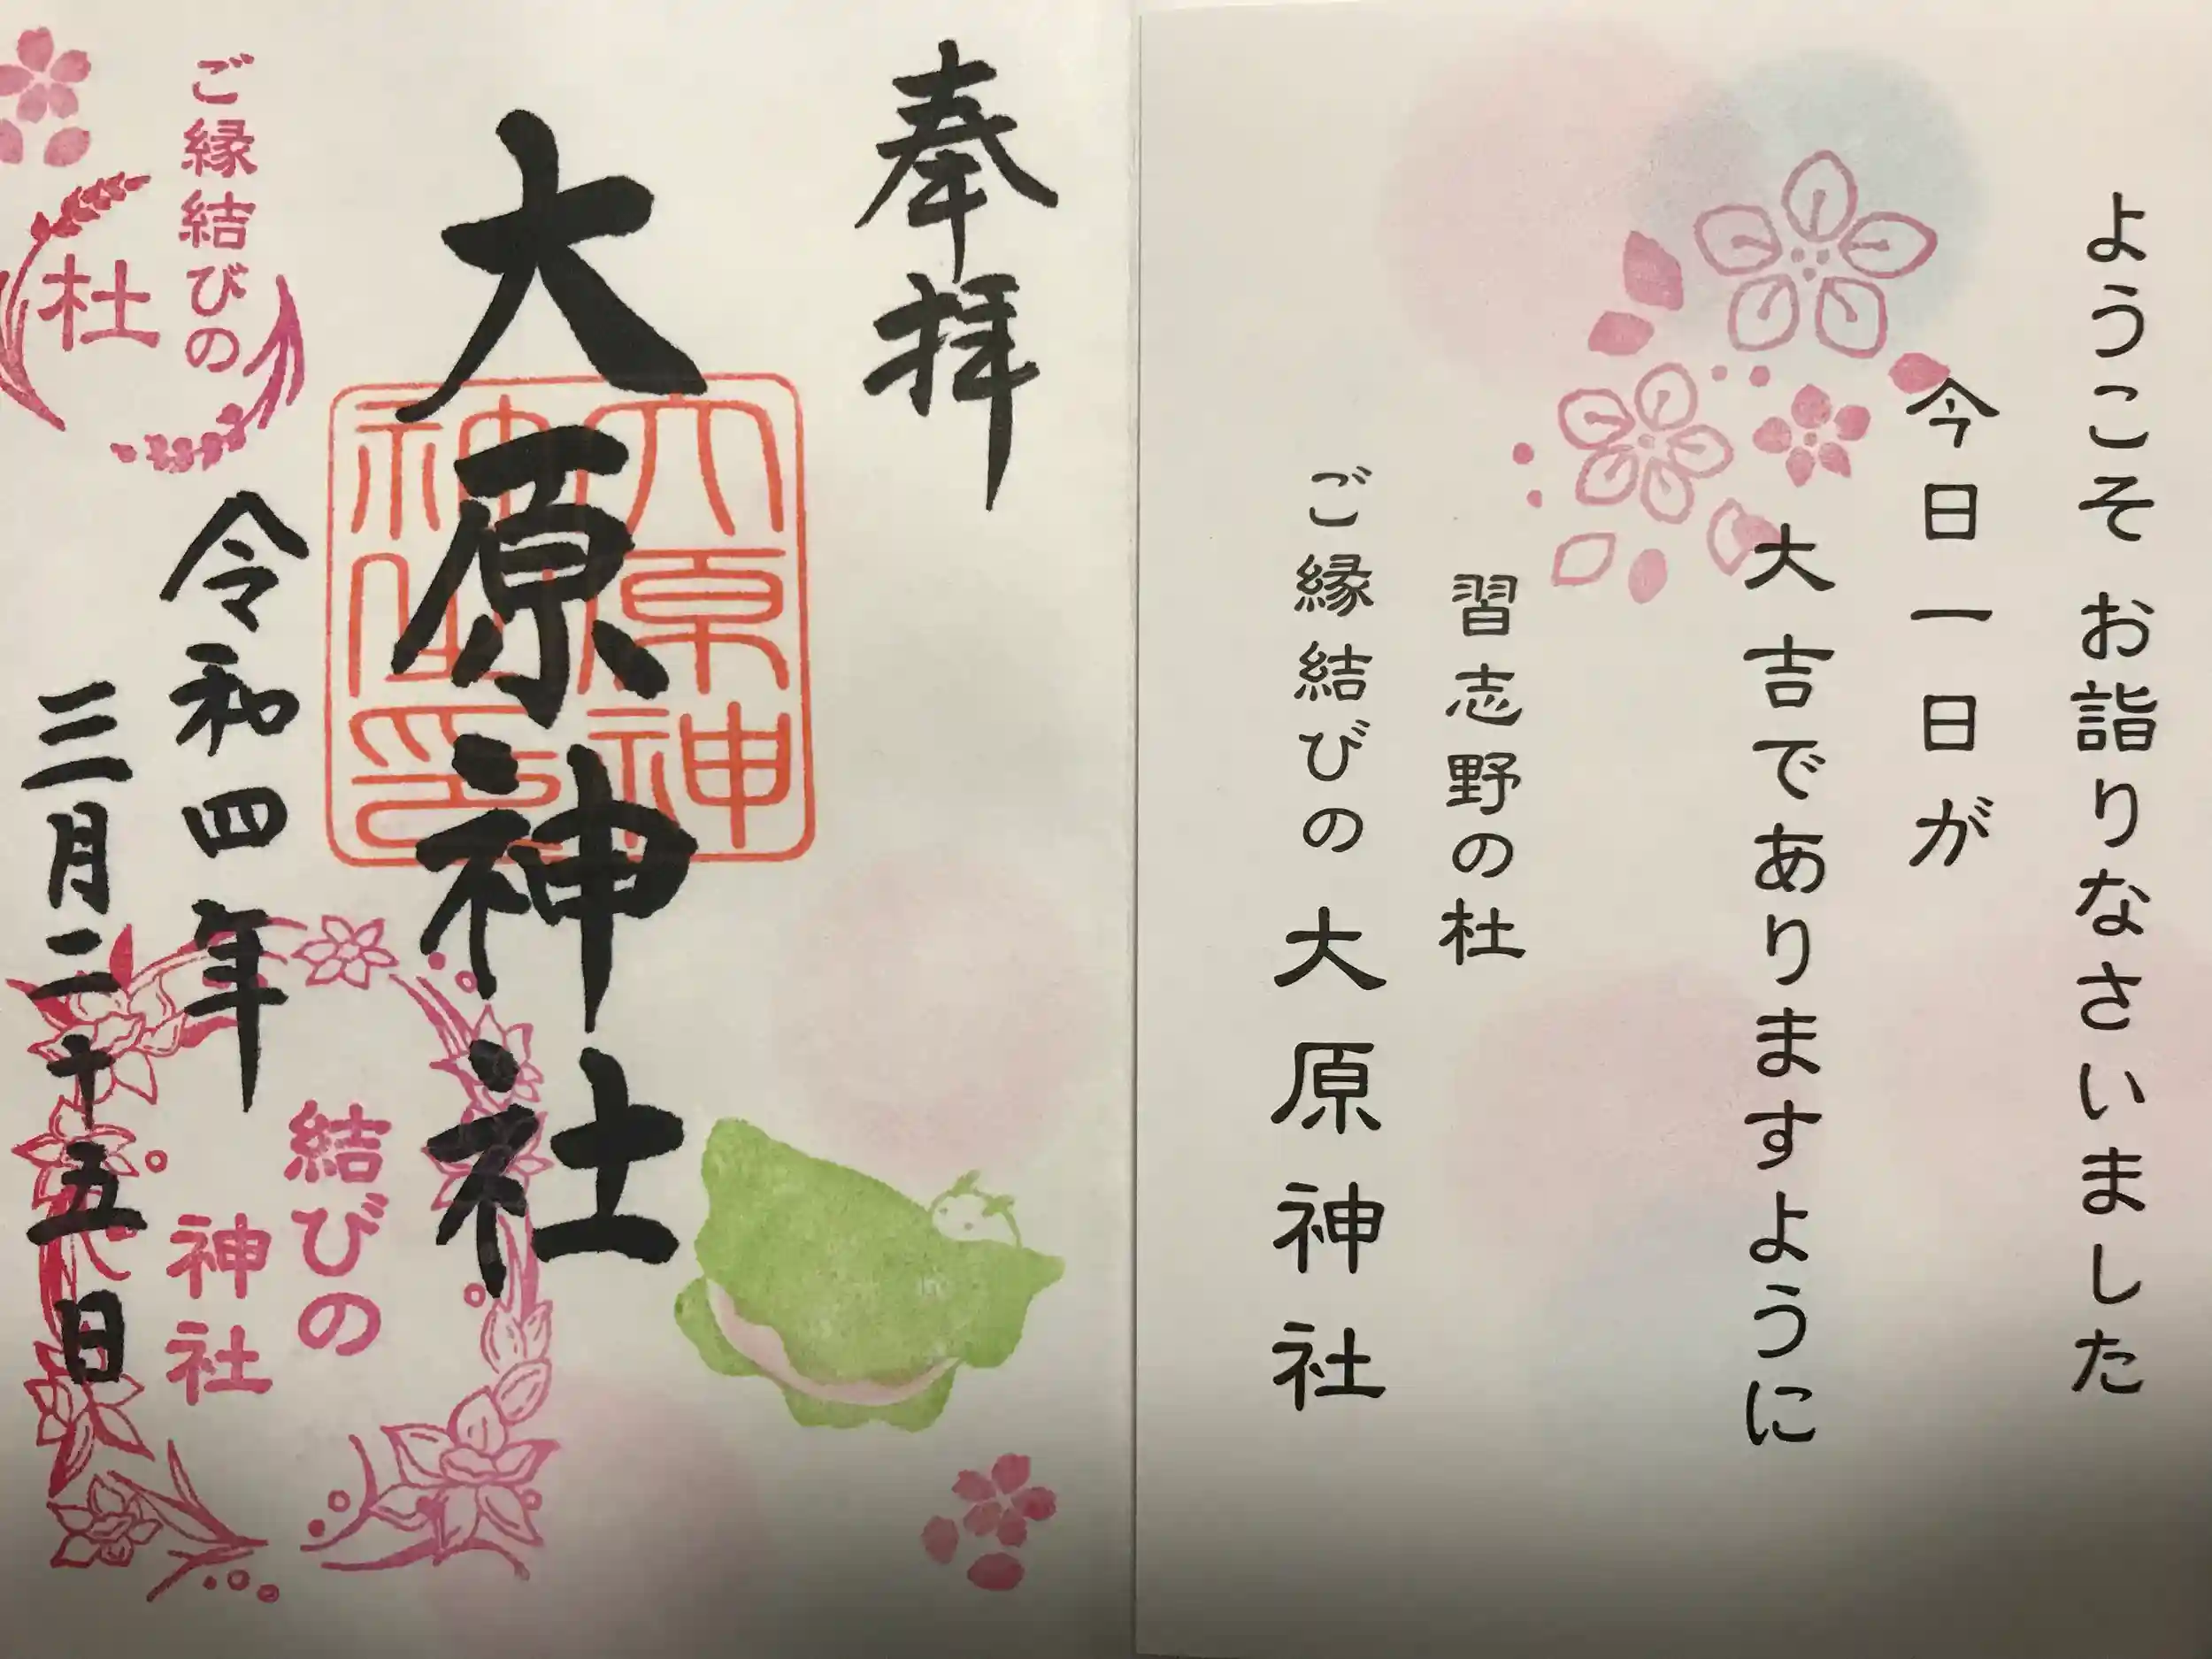 ようこそ お詣りなさいました
今日一日が
大吉でありますように
習志野の杜
ご縁結びの大原神社
奉拝
大原神社
大原神社之印
ご縁結びの
杜
令和四年
三月二十五日
結びの
神社